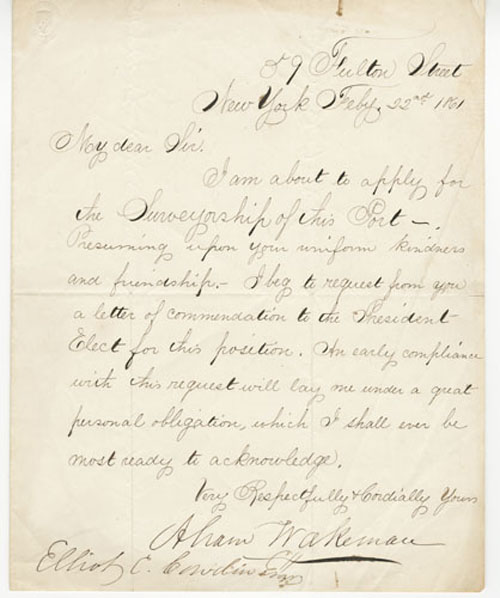 59 Fulton Street
New York Feby. 22nd 1861
My dear Sir.
I am about to apply for
the Surveyorship of this Port —.
Presuming upon your uniform kindness
and friendship.— I beg to request from you
a letter of commendation to the President
Elect for this position. An early compliance
with this request will lay me under a great
personal obligation, which I shall ever be
most ready to acknowledge.
Very Respectfully & Cordially Yours
Abram Wakeman
Elliot C. Cowdin Esq